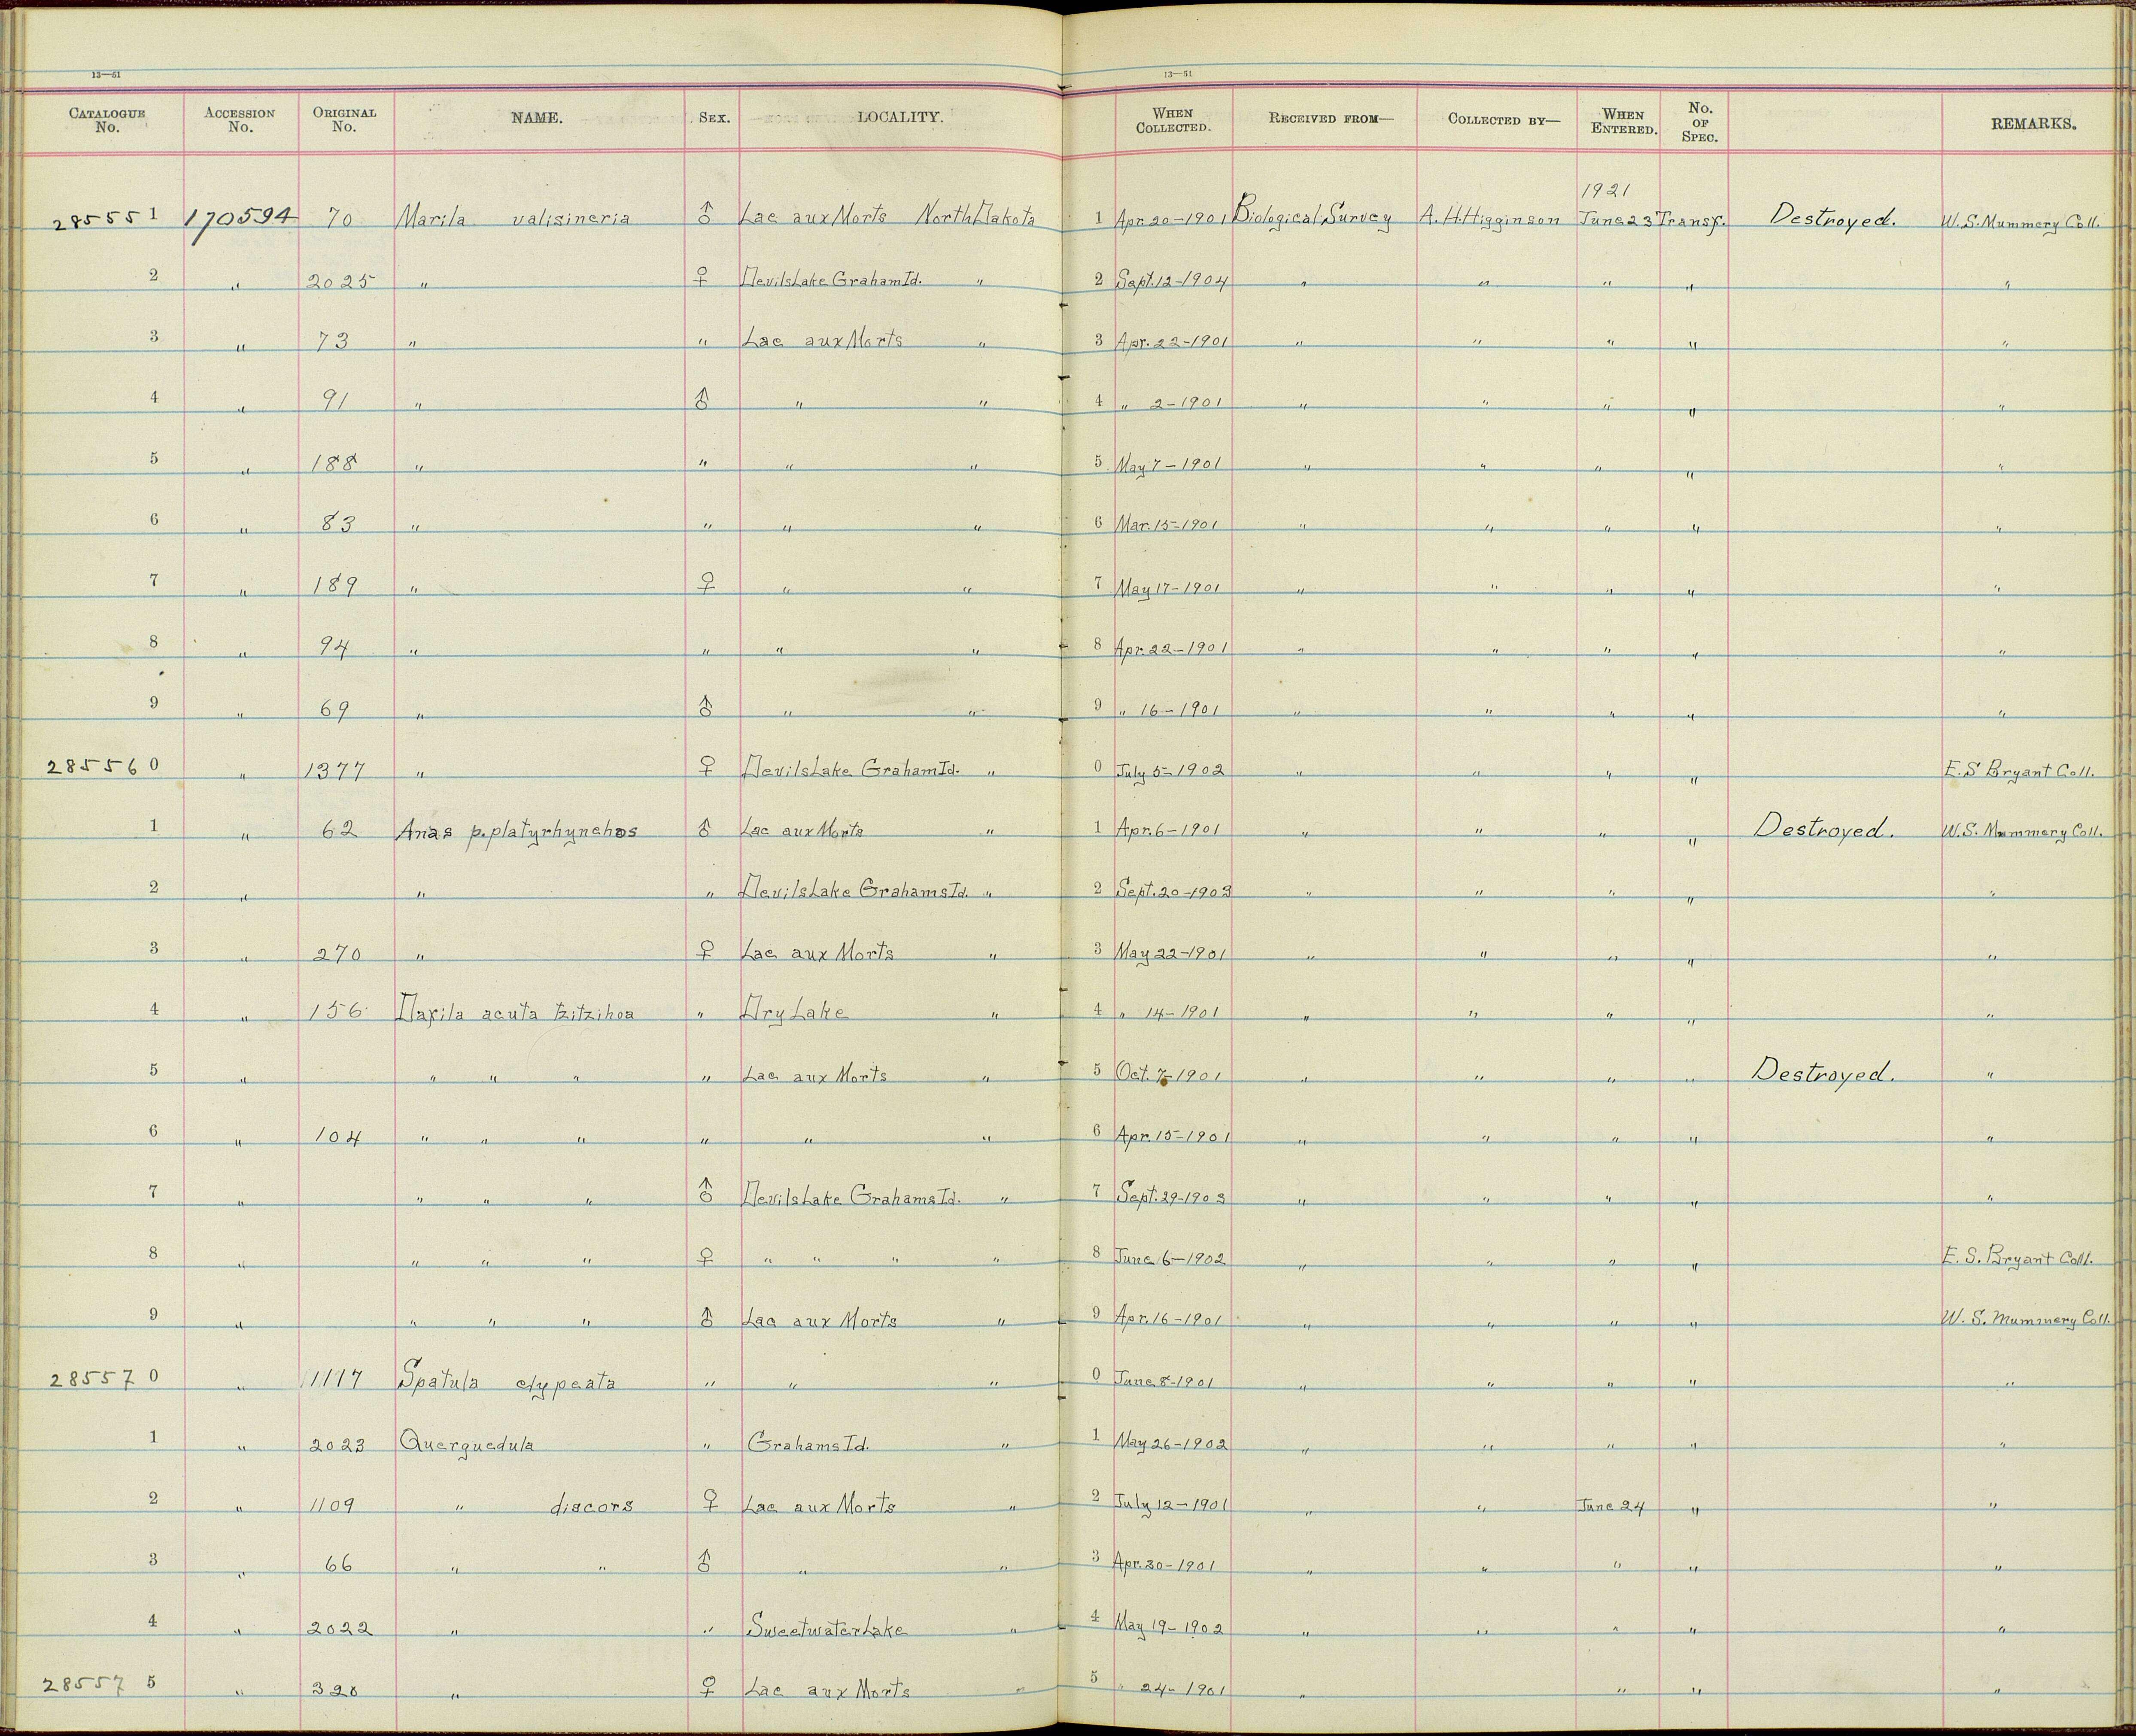 13—51 13—51
CATALOGUE No. ACCESSION No. ORIGINAL No. NAME. SEX. LOCALITY. WHEN COLLECTED. RECEIVED FROM— COLLECTED BY— WHEN ENTERED. No. OF SPEC. REMARKS.
1921
28555 1 170594 70 Marila valisineria ♂ Lac aux Morts North Dakota 1 Apr. 20-1901 Biological Survey A. H. Higginson June 23 Transf. Destroyed. W. S. Mummery Coll.
2 " 2025 " ♀ Devils Lake Graham Id. " 2 Sept. 12-1904 " " " " "
3 " 73 " " Lac aux Morts " 3 Apr. 22-1901 " " " " "
4 " 91 " ♂ " " 4 " 2-1901 " " " " "
5 " 188 " " " " 5 May 7-1901 " " " " "
6 " 83 " " " " 6 Mar. 15-1901 " " " " "
7 " 189 " ♀ " " 7 May 17-1901 " " " " "
8 " 94 " " " " 8 Apr. 22-1901 " " " " "
9 " 69 " ♂ " " 9 " 16-1901 " " " " "
28556 0 " 1377 " ♀ Devils Lake Graham Id. " 0 July 5-1902 " " " " E. S Bryant Coll.
1 " 62 Anas p. platyrhynchos ♂ Lac aux Morts " 1 Apr. 6-1901 " " " " Destroyed. W. S. Mummery Coll.
2 " " " Devils Lake Grahams Id. " 2 Sept. 20-1903 " " " " "
3 " 270 " ♀ Lac aux Morts " 3 May 22-1901 " " " " "
4 " 156 Dafila acuta tzitzihoa " Dry Lake " 4 " 14-1901 " " " " "
5 " " " " " Lac aux Morts " 5 Oct. 7-1901 " " " " Destroyed. "
6 " 104 " " " " " " 6 Apr. 15-1901 " " " " "
7 " " " " ♂ Devils Lake Grahams Id. " 7 Sept. 29-1903 " " " " "
8 " " " " ♀ " " " " 8 June 6-1902 " " " " E. S. Bryant Coll.
9 " " " " ♂ Lac aux Morts " 9 Apr. 16-1901 " " " " W. S. Mummery Coll.
28557 0 " 1117 Spatula clypeata " " " 0 June 8-1901 " " " " "
1 " 2023 Querquedula " Grahams Id. " 1 May 26-1902 " " " " "
2 " 1109 " discors ♀ Lac aux Morts " 2 July 12-1901 " " June 24 " "
3 " 66 " " ♂ " " 3 Apr. 30-1901 " " " " "
4 " 2022 " " Sweetwater Lake " 4 May 19-1902 " " " " "
28557 5 " 320 " ♀ Lac aux Morts " 5 " 24-1901 " " " "